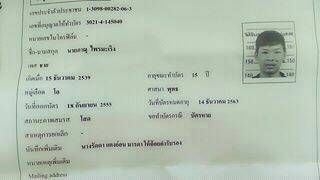 เลขประจำตัวประชาชน 1-3098-00282-06-3
เลขที่อนุญาตให้ทำบัตร 3021-4-145040
หมายเลขไมโครฟิล์ม -
ชื่อ-นามสกุล นายภาณุ ไพรมะเริง
เพศ ชาย
เกิดเมื่อ 15 ธันวาคม 2539 อายุขณะทำบัตร 15 ปี
หมู่เลือด โอ ศาสนา พุทธ
วันที่ออกบัตร 18 กันยายน 2555 วันที่บัตรหมดอายุ 14 ธันวาคม 2563
สถานะภาพสมรส โสด ขอทำบัตรกรณี บัตรหาย
สาเหตุการยกเลิก -
บันทึกเพิ่มเติม มารดา ให้ถ้อยคำรับรอง
หมายเหตุเพิ่มเติม
Mailing address
160
150
140